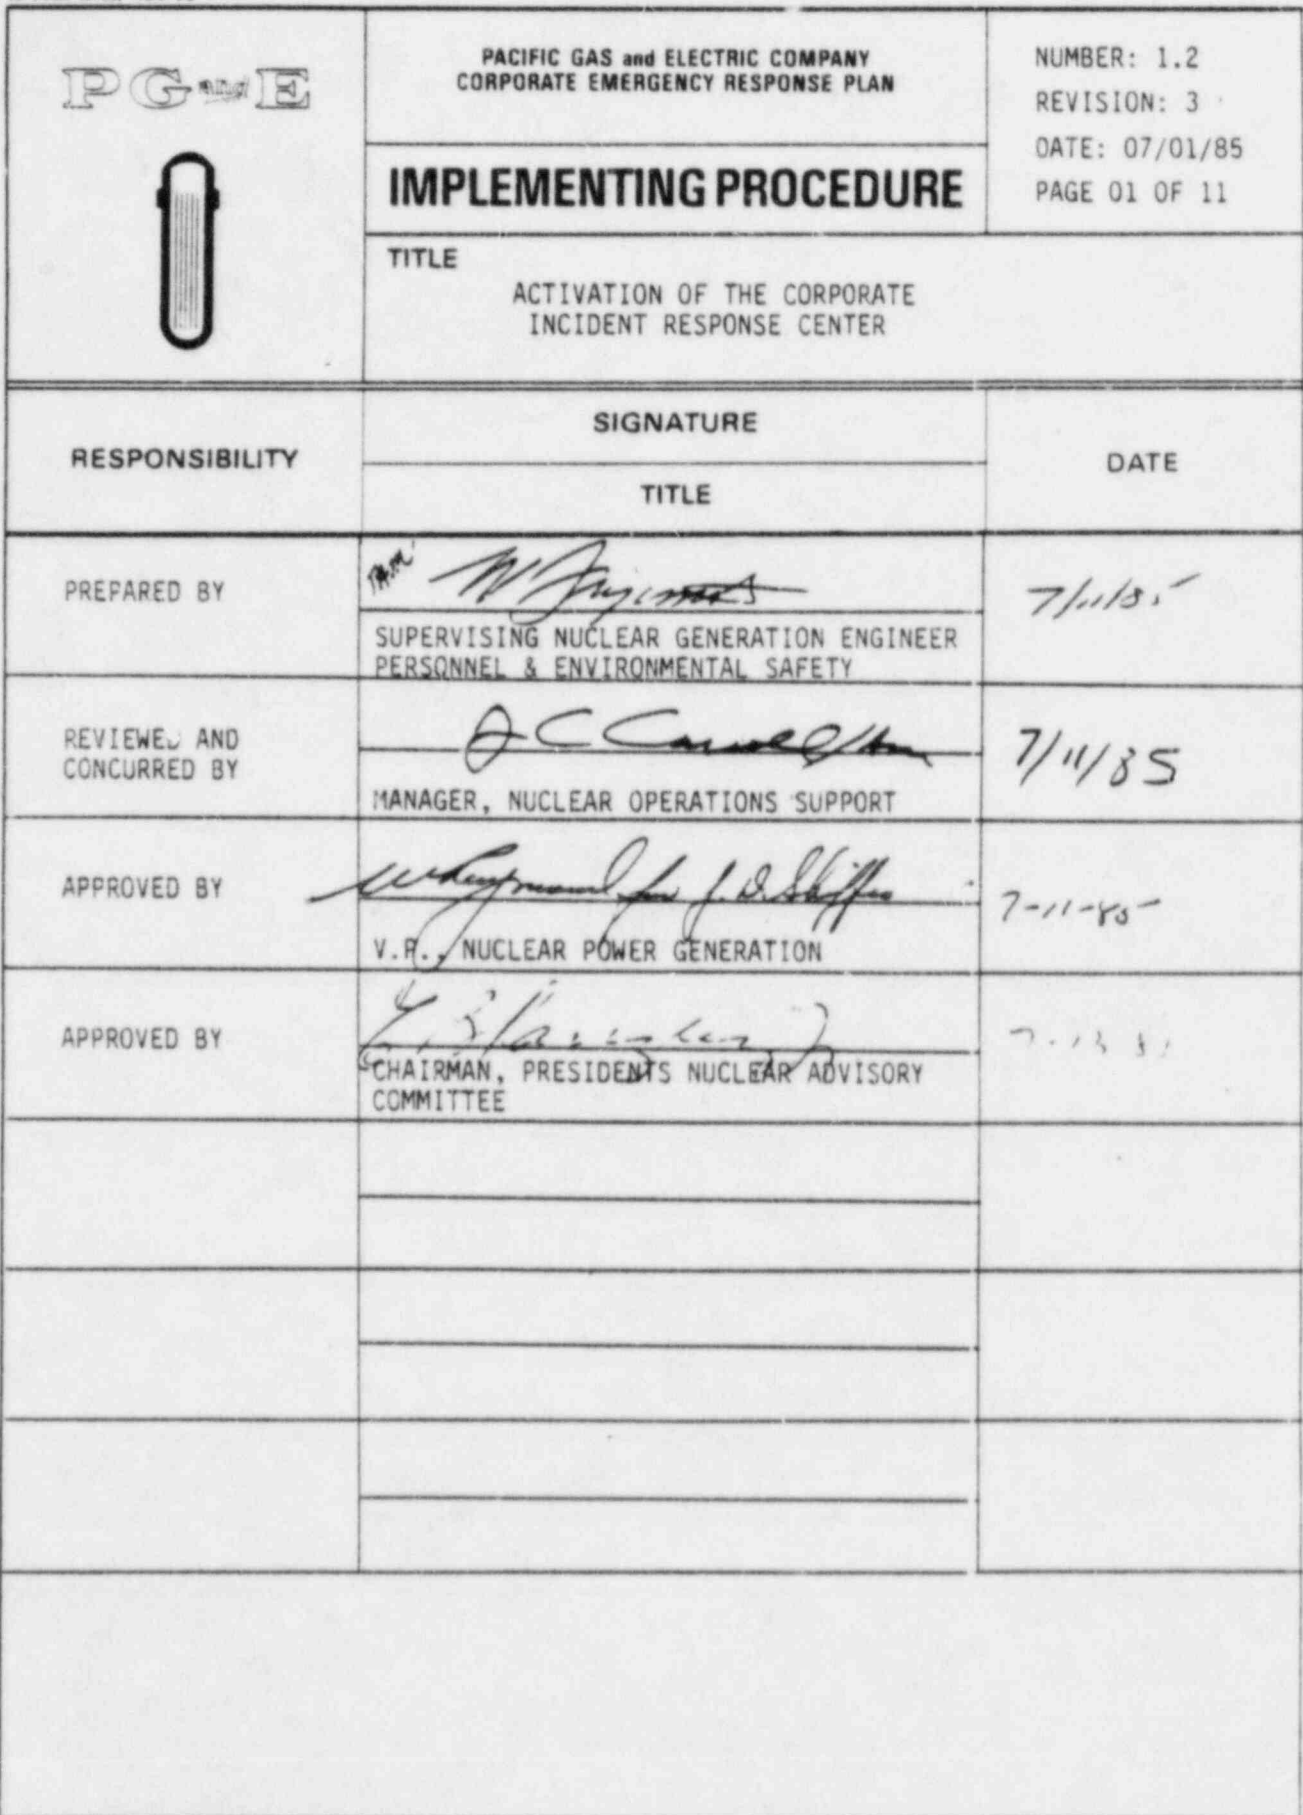 PG and E
PACIFIC GAS and ELECTRIC COMPANY
CORPORATE EMERGENCY RESPONSE PLAN
IMPLEMENTING PROCEDURE
NUMBER: 1.2
REVISION: 3
DATE: 07/01/85
PAGE 01 OF 11
TITLE
ACTIVATION OF THE CORPORATE
INCIDENT RESPONSE CENTER
RESPONSIBILITY
SIGNATURE
TITLE
DATE
PREPARED BY
7/11/85
SUPERVISING NUCLEAR GENERATION ENGINEER
PERSONNEL & ENVIRONMENTAL SAFETY
REVIEWED AND
CONCURRED BY
J C Carroll
7/11/85
MANAGER, NUCLEAR OPERATIONS SUPPORT
APPROVED BY
for J. D. Shiffer
7-11-85
V.P., NUCLEAR POWER GENERATION
APPROVED BY
CHAIRMAN, PRESIDENTS NUCLEAR ADVISORY
COMMITTEE